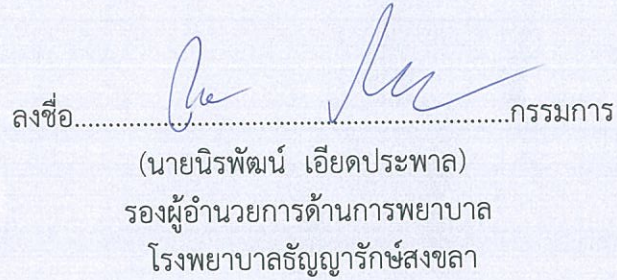 ลงชื่อ..........................................................................กรรมการ
(นายนิรพัฒน์ เอียดประพาล)
รองผู้อำนวยการด้านการพยาบาล
โรงพยาบาลธัญญารักษ์สงขลา